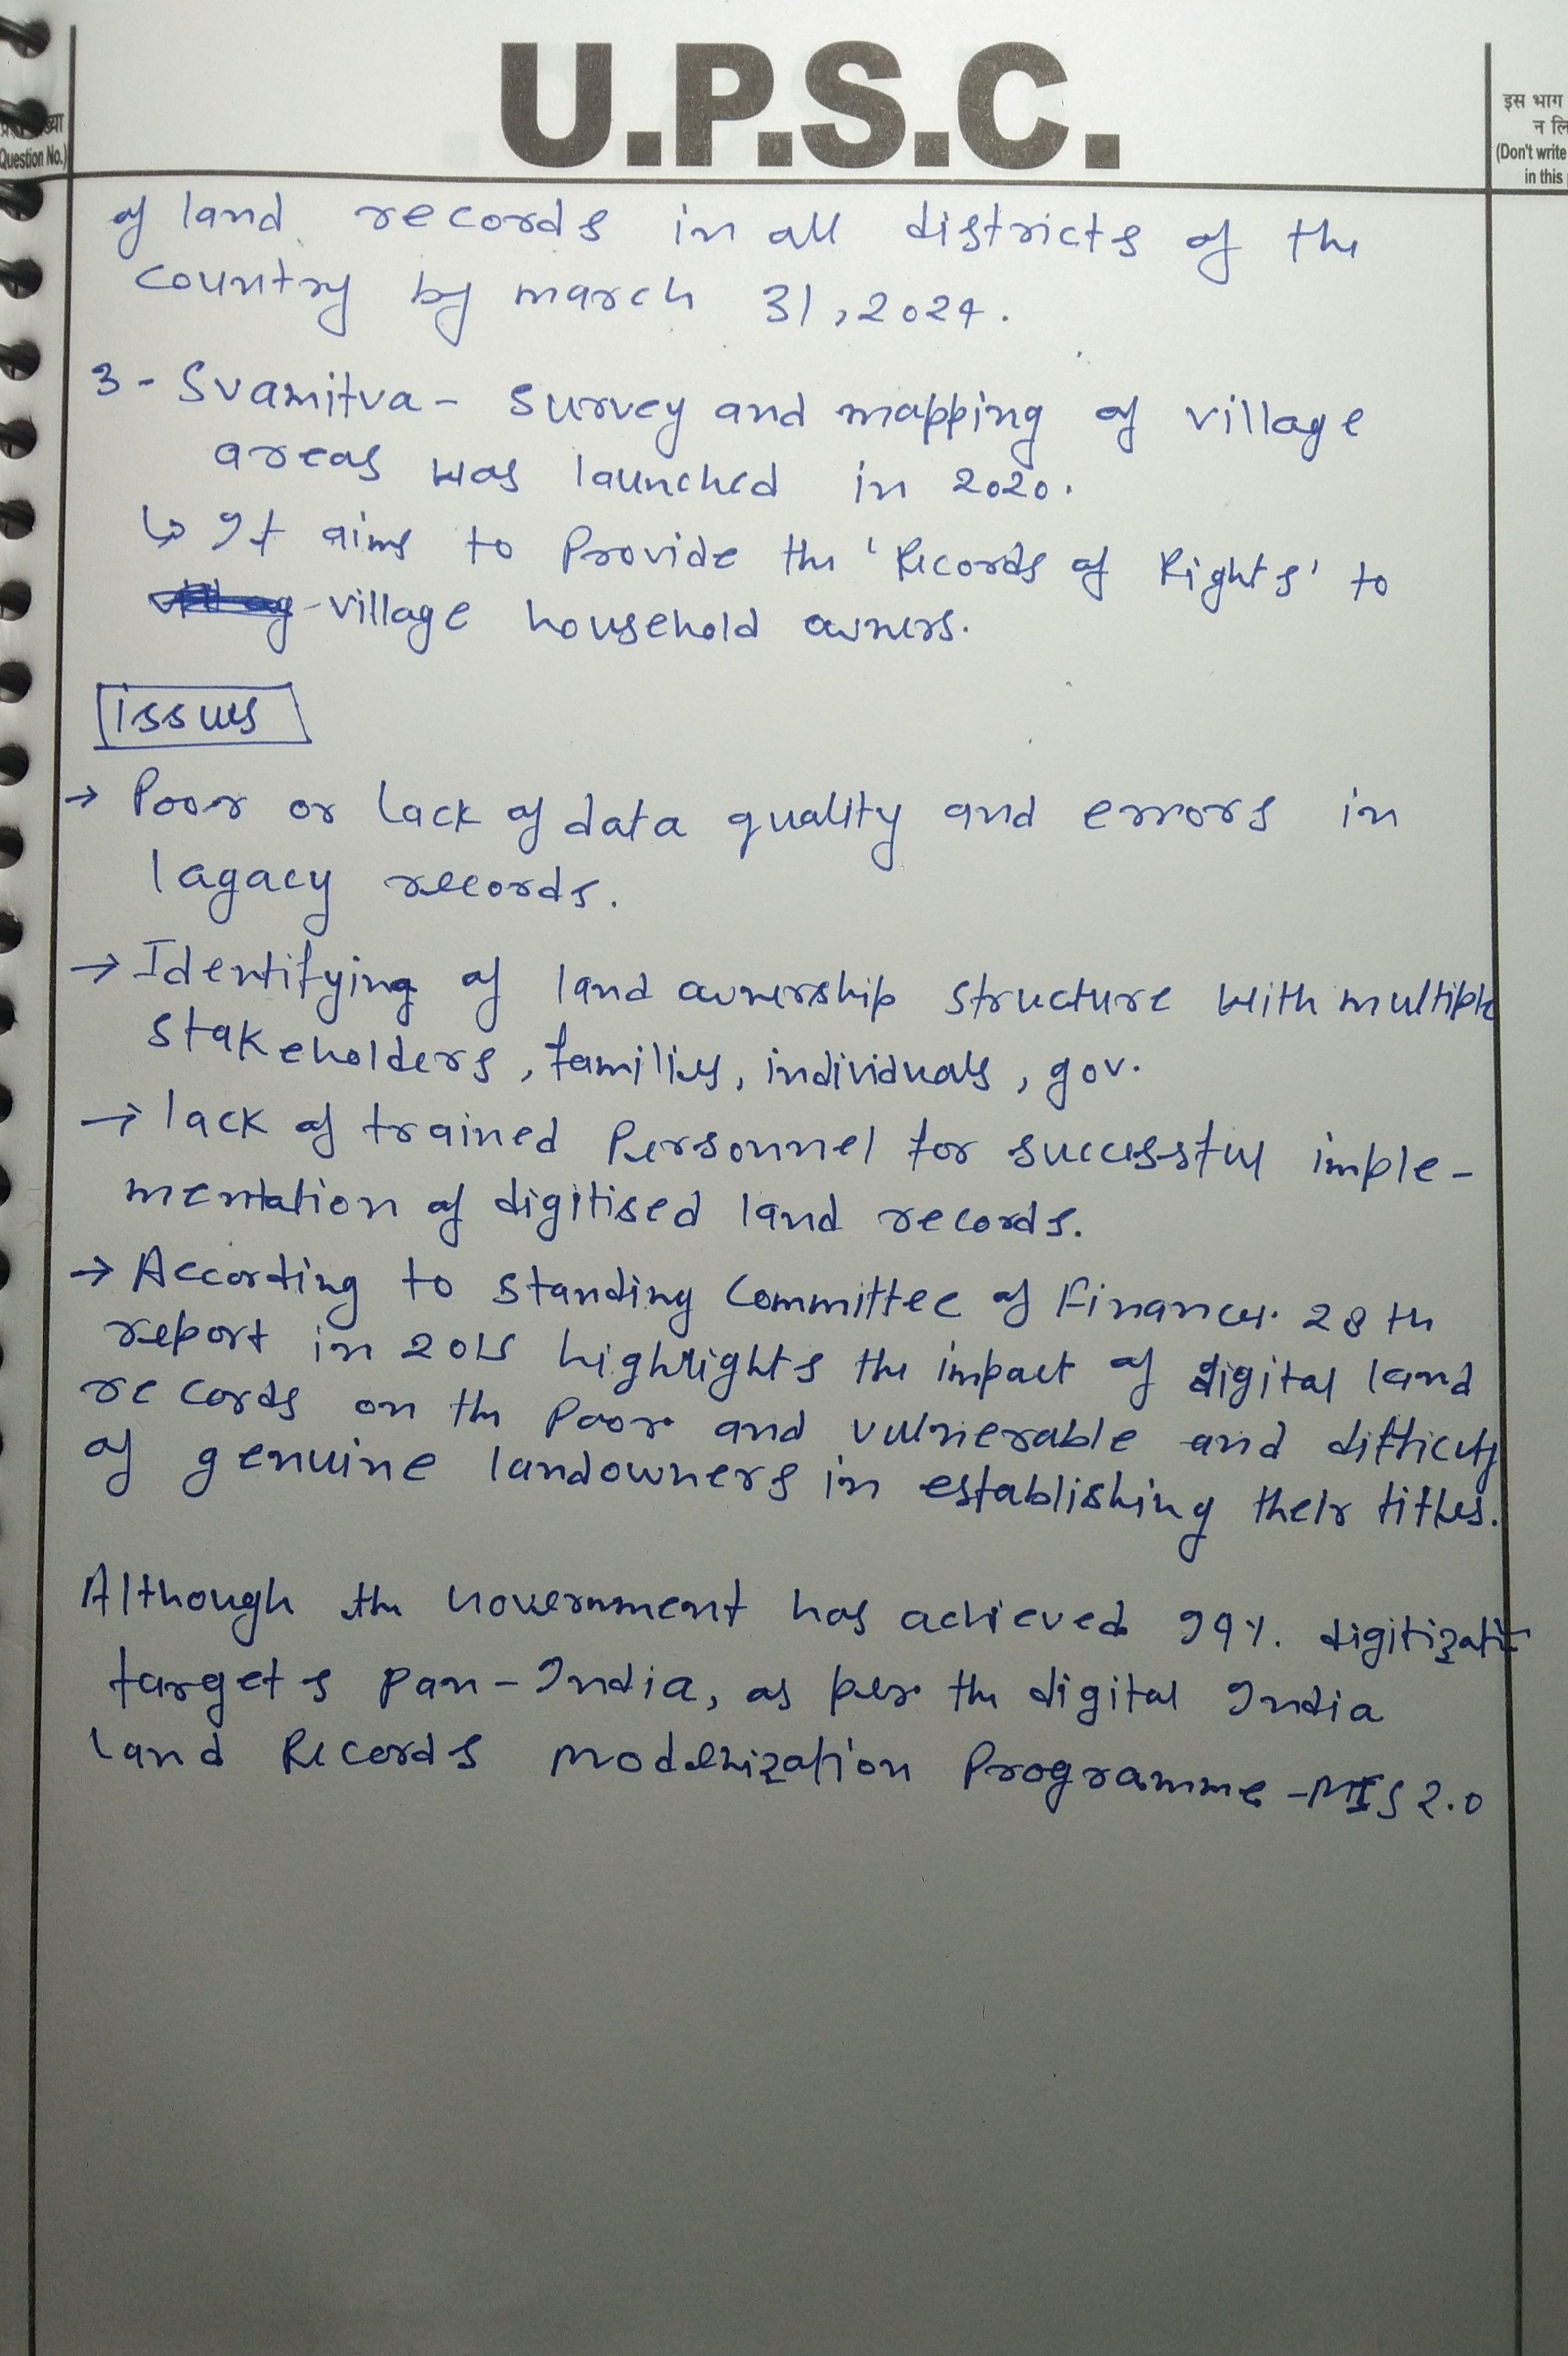 U.P.S.C.
(Question No.)
इस भाग
(Don't write
in this
of land records in all districts of the
country by march 31, 2024.
3- Svamitva - survey and mapping of village
areas was launched in 2020.
↳ It aims to Provide the 'Records of Rights' to
village household owners.
issues
→ Poor or lack of data quality and errors in
lagacy records.
→ Identifying of land ownership structure with multiple
stakeholders, families, individuals, gov.
→ lack of trained Personnel for successful imple-
mentation of digitised land records.
→ According to standing committee of Finance. 28th
report in 2015 highlights the impact of digital land
records on the Poor and vulnerable and difficulty
of genuine landowners in establishing their titles.
Although the Government has achieved 99%. digitizati
targets pan-India, as per the digital India
land Records modernization Programme - MIS 2.0